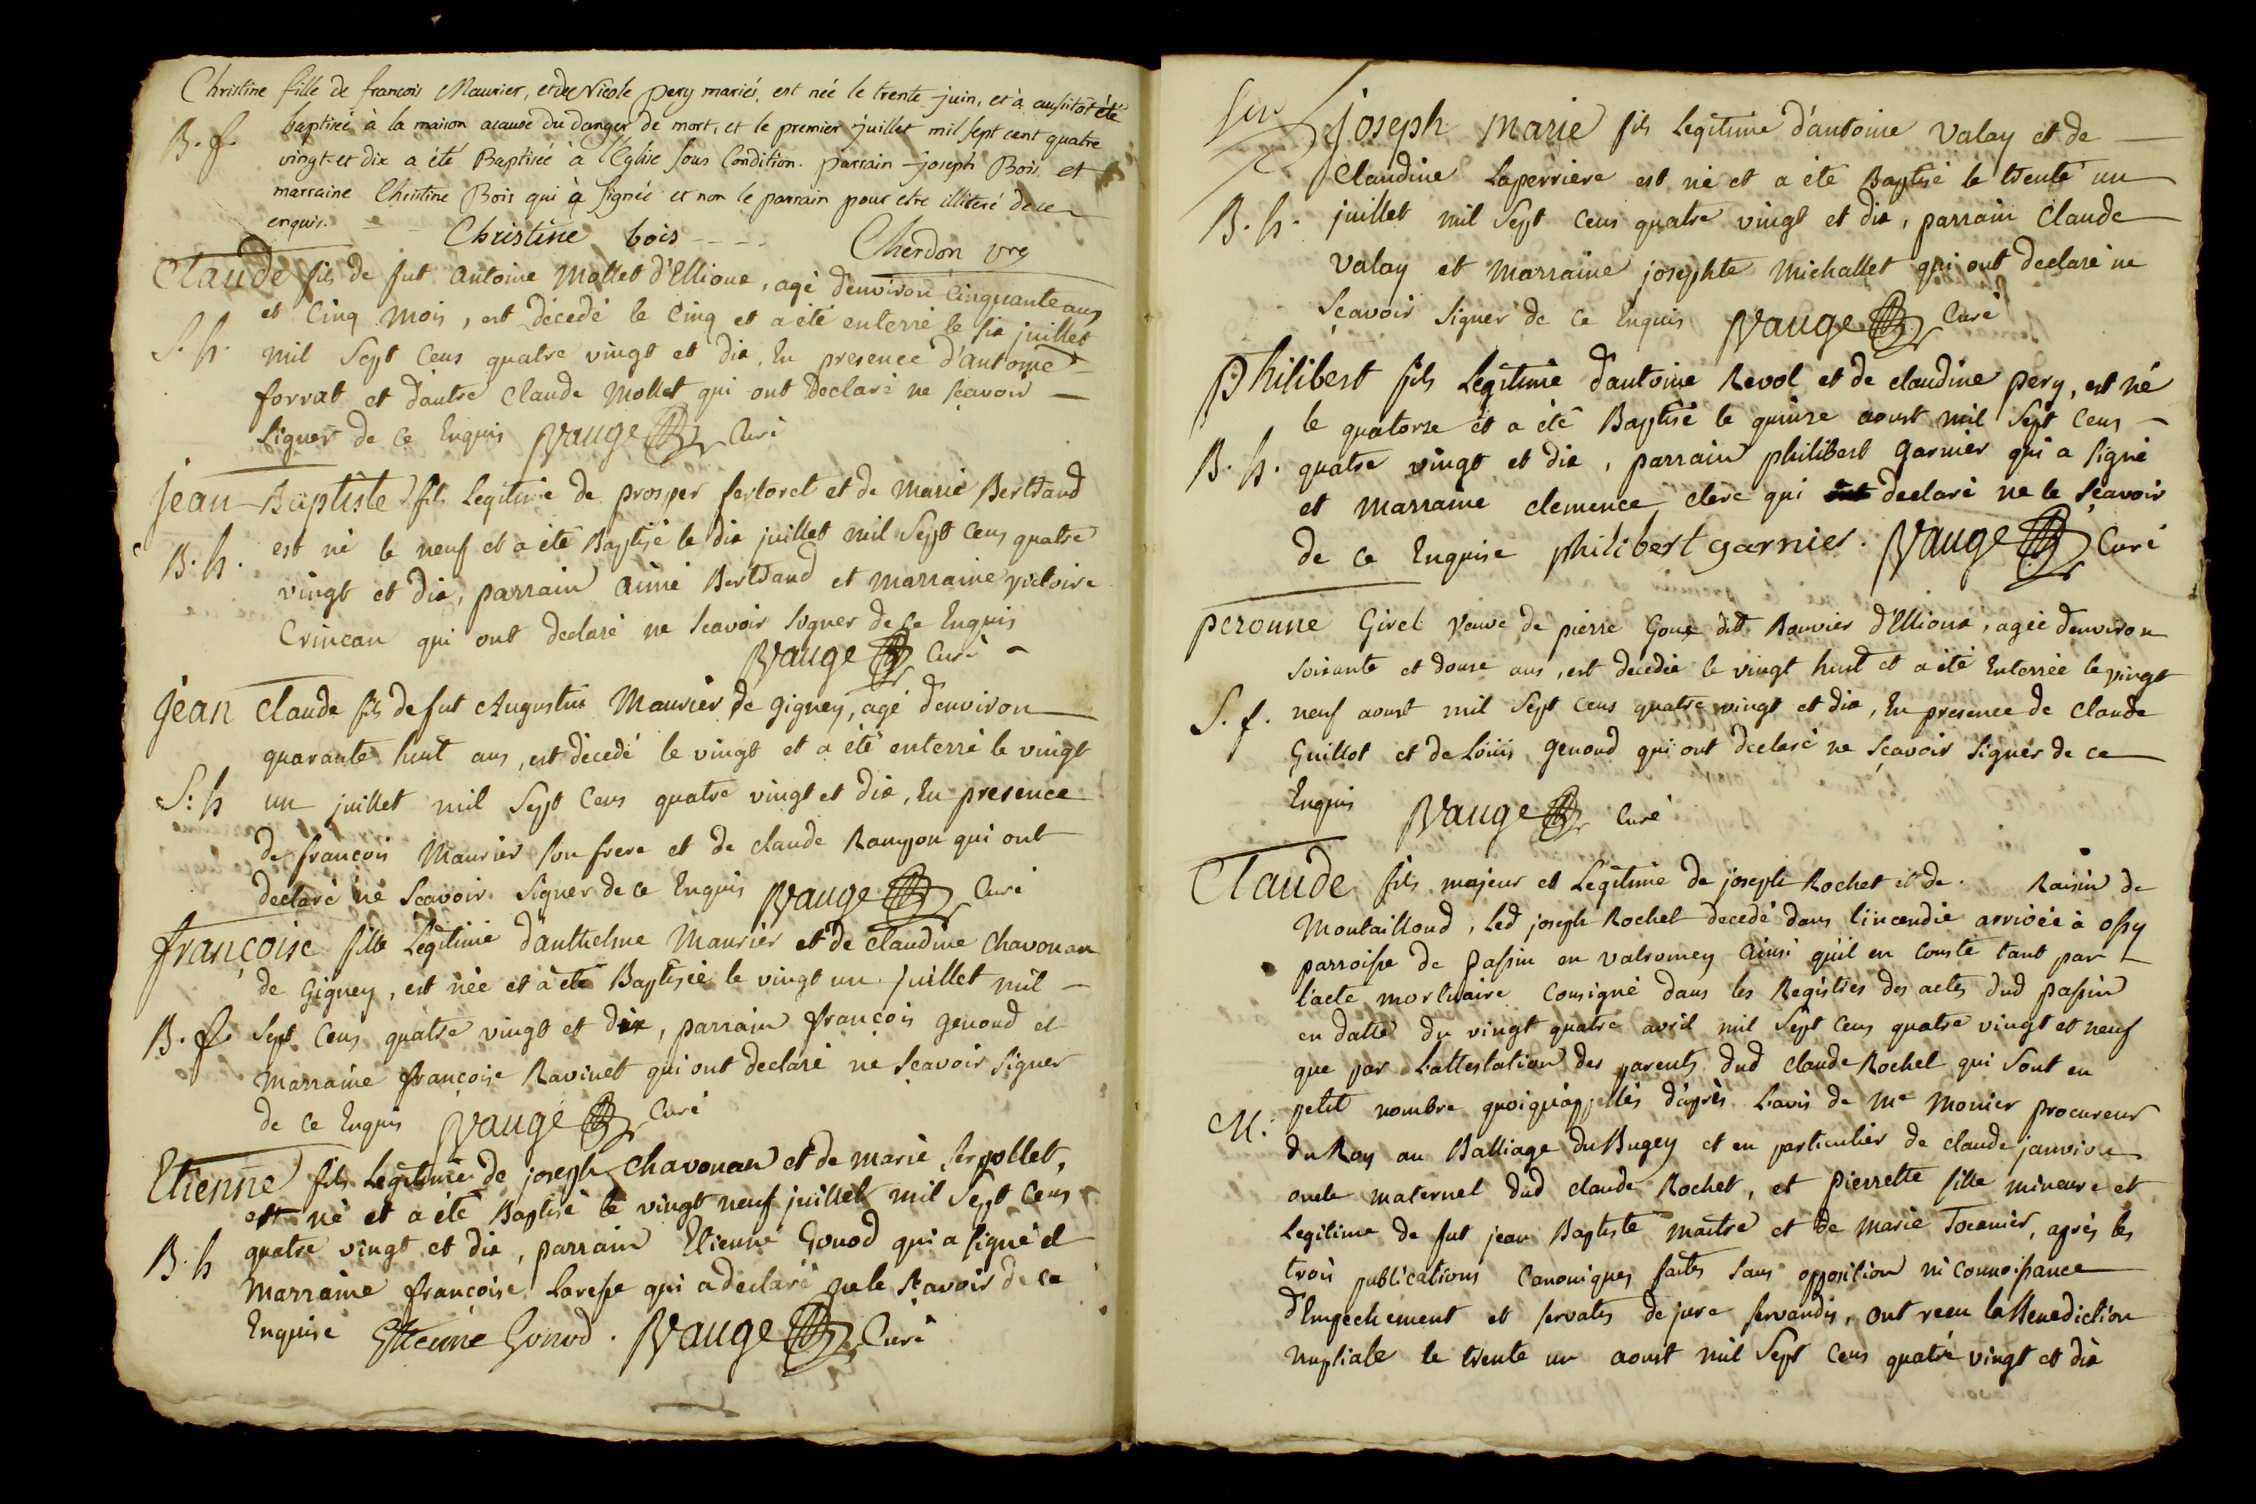 Christine fille de francois Maurier, et de Nicole pery mariés, est née le trente juin, et à aussitôt été
B. f. baptisée à la maison acause du danger de mort, et le premier juillet mil sept cent quatre
vingt et dix a été Baptisée à l'Eglise sous Condition. parrain joseph Bois et
marraine Christine Bois qui à signée et non le parrain pour etre illiteré de ce
enquis. Christine bois Cherdon vre
Claude fils de fut Antoine Mollet d'Ellioux, agé d'environ cinquante ans
et Cinq mois, est décedé le Cinq et a été enterré le six juillet
S. h. mil Sept Cens quatre vingt et dix, En presence d'antoine
forrat et d'autre Claude Mollet qui ont declaré ne scavoir
signer de ce Enquis Vauge Curé
Jean Baptiste fils Legitime de prosper fertoret et de Marie Bertrand
B. h. est né le neuf et a été Baptisé le dix juillet mil Sept Cens quatre
vingt et dix, parrain aimé Bertrand et marraine victoire
Crincan qui ont declaré ne scavoir signer de ce Enquis
Vauge Curé
Jean Claude fils de fut Augustin Maurier de gigney, agé d'environ
quarante huit ans, est décedé le vingt et a été enterré le vingt
S: h un juillet mil Sept Cens quatre vingt et dix, En presence
de françois Maurier son frere et de claude qui ont
declaré ne Scavoir Signer de ce Enquis Vauge Curé
françoise fille Legitime d'anthelme Maurier et de claudine Chavonan
de Gigney, est née et à été Baptisée le vingt un juillet mil
B. f. Sept Cens quatre vingt et dix, parrain françois genoud et
Marraine françoise Ravinet qui ont declaré ne Scavoir Signer
de Ce Enquis Vauge Curé
Etienne fils Legitime de joseph Chavonan et de marie Serpollet,
est né et a été Baptisé le vingt neuf juillet mil Sept Cens
B. h quatre vingt et dix, parrain Etienne Gonod qui a signé et
Marraine françoise Laresse qui a declaré ne le Scavoir de ce
Enquise Etienne Gonod. Vauge Curé
Joseph Marie fils Legitime d'antoine Valay et de
Claudine Laperriere est né et a été Baptisé le trente un
B. h. juillet mil Sept Cens quatre vingt et dix, parrain Claude
Valay et Marraine josephte Michallet qui ont declaré ne
Sçavoir Signer de Ce Enquis Vauge Curé
Philibert fils Legitime d'antoine Revol et de claudine pery, est né
le quatorze et a été Baptisé le quinze aoust mil Sept Cens
B. h. quatre vingt et dix, parrain philibert garnier qui a signé
et Marraine clemence clerc qui declaré ne le Sçavoir
de Ce Enquise philibert garnier. Vauge Curé
peronne Girel veuve de pierre Goux dit Bouvier d'Ellioux, agée d'environ
soixante et douze ans, est decedée le vingt huit et a été Enterrée le vingt
S. f. neuf aoust mil Sept Cens quatre vingt et dix, En presence de Claude
Guillot et de Loüis genoud qui ont declaré ne Sçavoir signer de ce
Enquis Vauge Curé
Claude fils majeur et Legitime de joseph Rochet et de. Raisin de
Montailloud, Led joseph Rochet decedé dans l'incendie arrivée à ossy
parroisse de passin en valromey Ainsi qu'il en conste tant par
l'acte mortuaire Consigné dans les Registres des actes dud passin
en datte du vingt quatre avril mil Sept Cens quatre vingt et neuf
que par L'attestation des parents dud claude Rochet qui Sont en
M. petit nombre quoiqu'appellés d'après L'avis de Me Monier procureur
du Roy au Balliage du Bugey et en particulier de claude janvion
oncle maternel dud claude Rochet, et Pierrette fille mineure et
Legitime de fut jean Baptiste maître et de Marie Tocanier, après les
trois publications Canoniques faites sans opposition ni Connoissance
d'Empechement et servatis de jure servandis, ont recu la Benediction
nuptiale le trente un aoust mil Sept Cens quatre vingt et dix